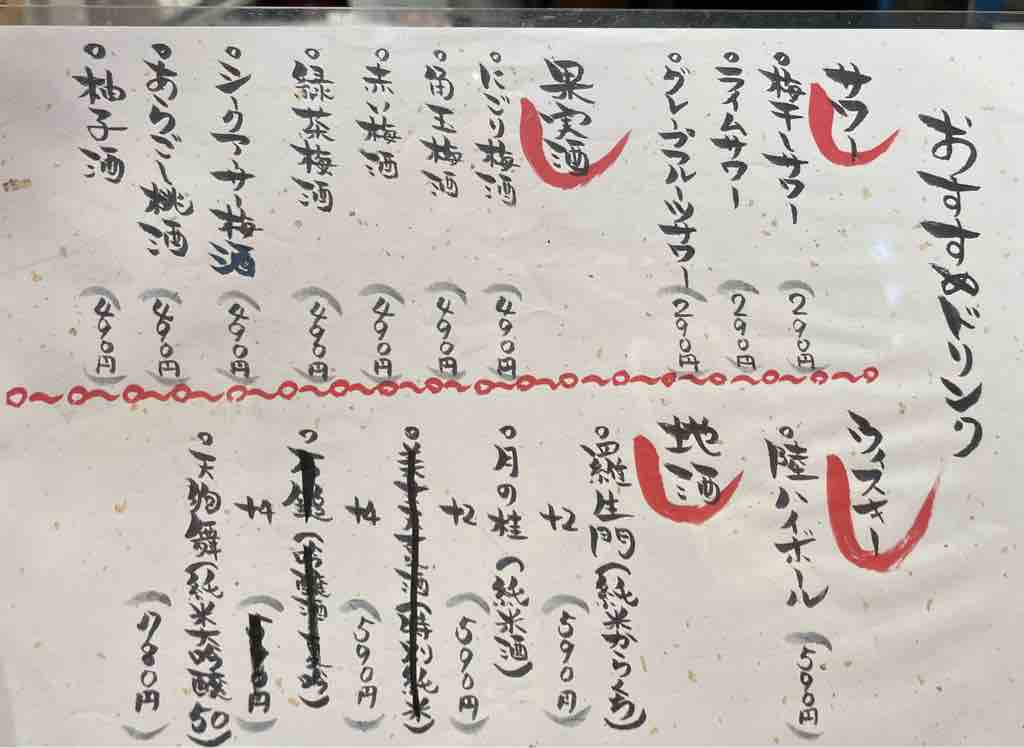 おすすめドリンク
サワー
梅干サワー (290円)
ライムサワー (290円)
グレープフルーツサワー (290円)
果実酒
にごり梅酒 (490円)
角玉梅酒 (490円)
赤い梅酒 (490円)
緑茶梅酒 (490円)
シークアーサー梅酒 (490円)
あらごし桃酒 (490円)
柚子酒 (490円)
ウィスキー
陸ハイボール (500円)
地酒
羅生門(純米からくち)
+2 (590円)
月の桂(純米酒)
+2 (590円)
+4 (590円)
+4
天狗舞(純米大吟醸50)
(790円)